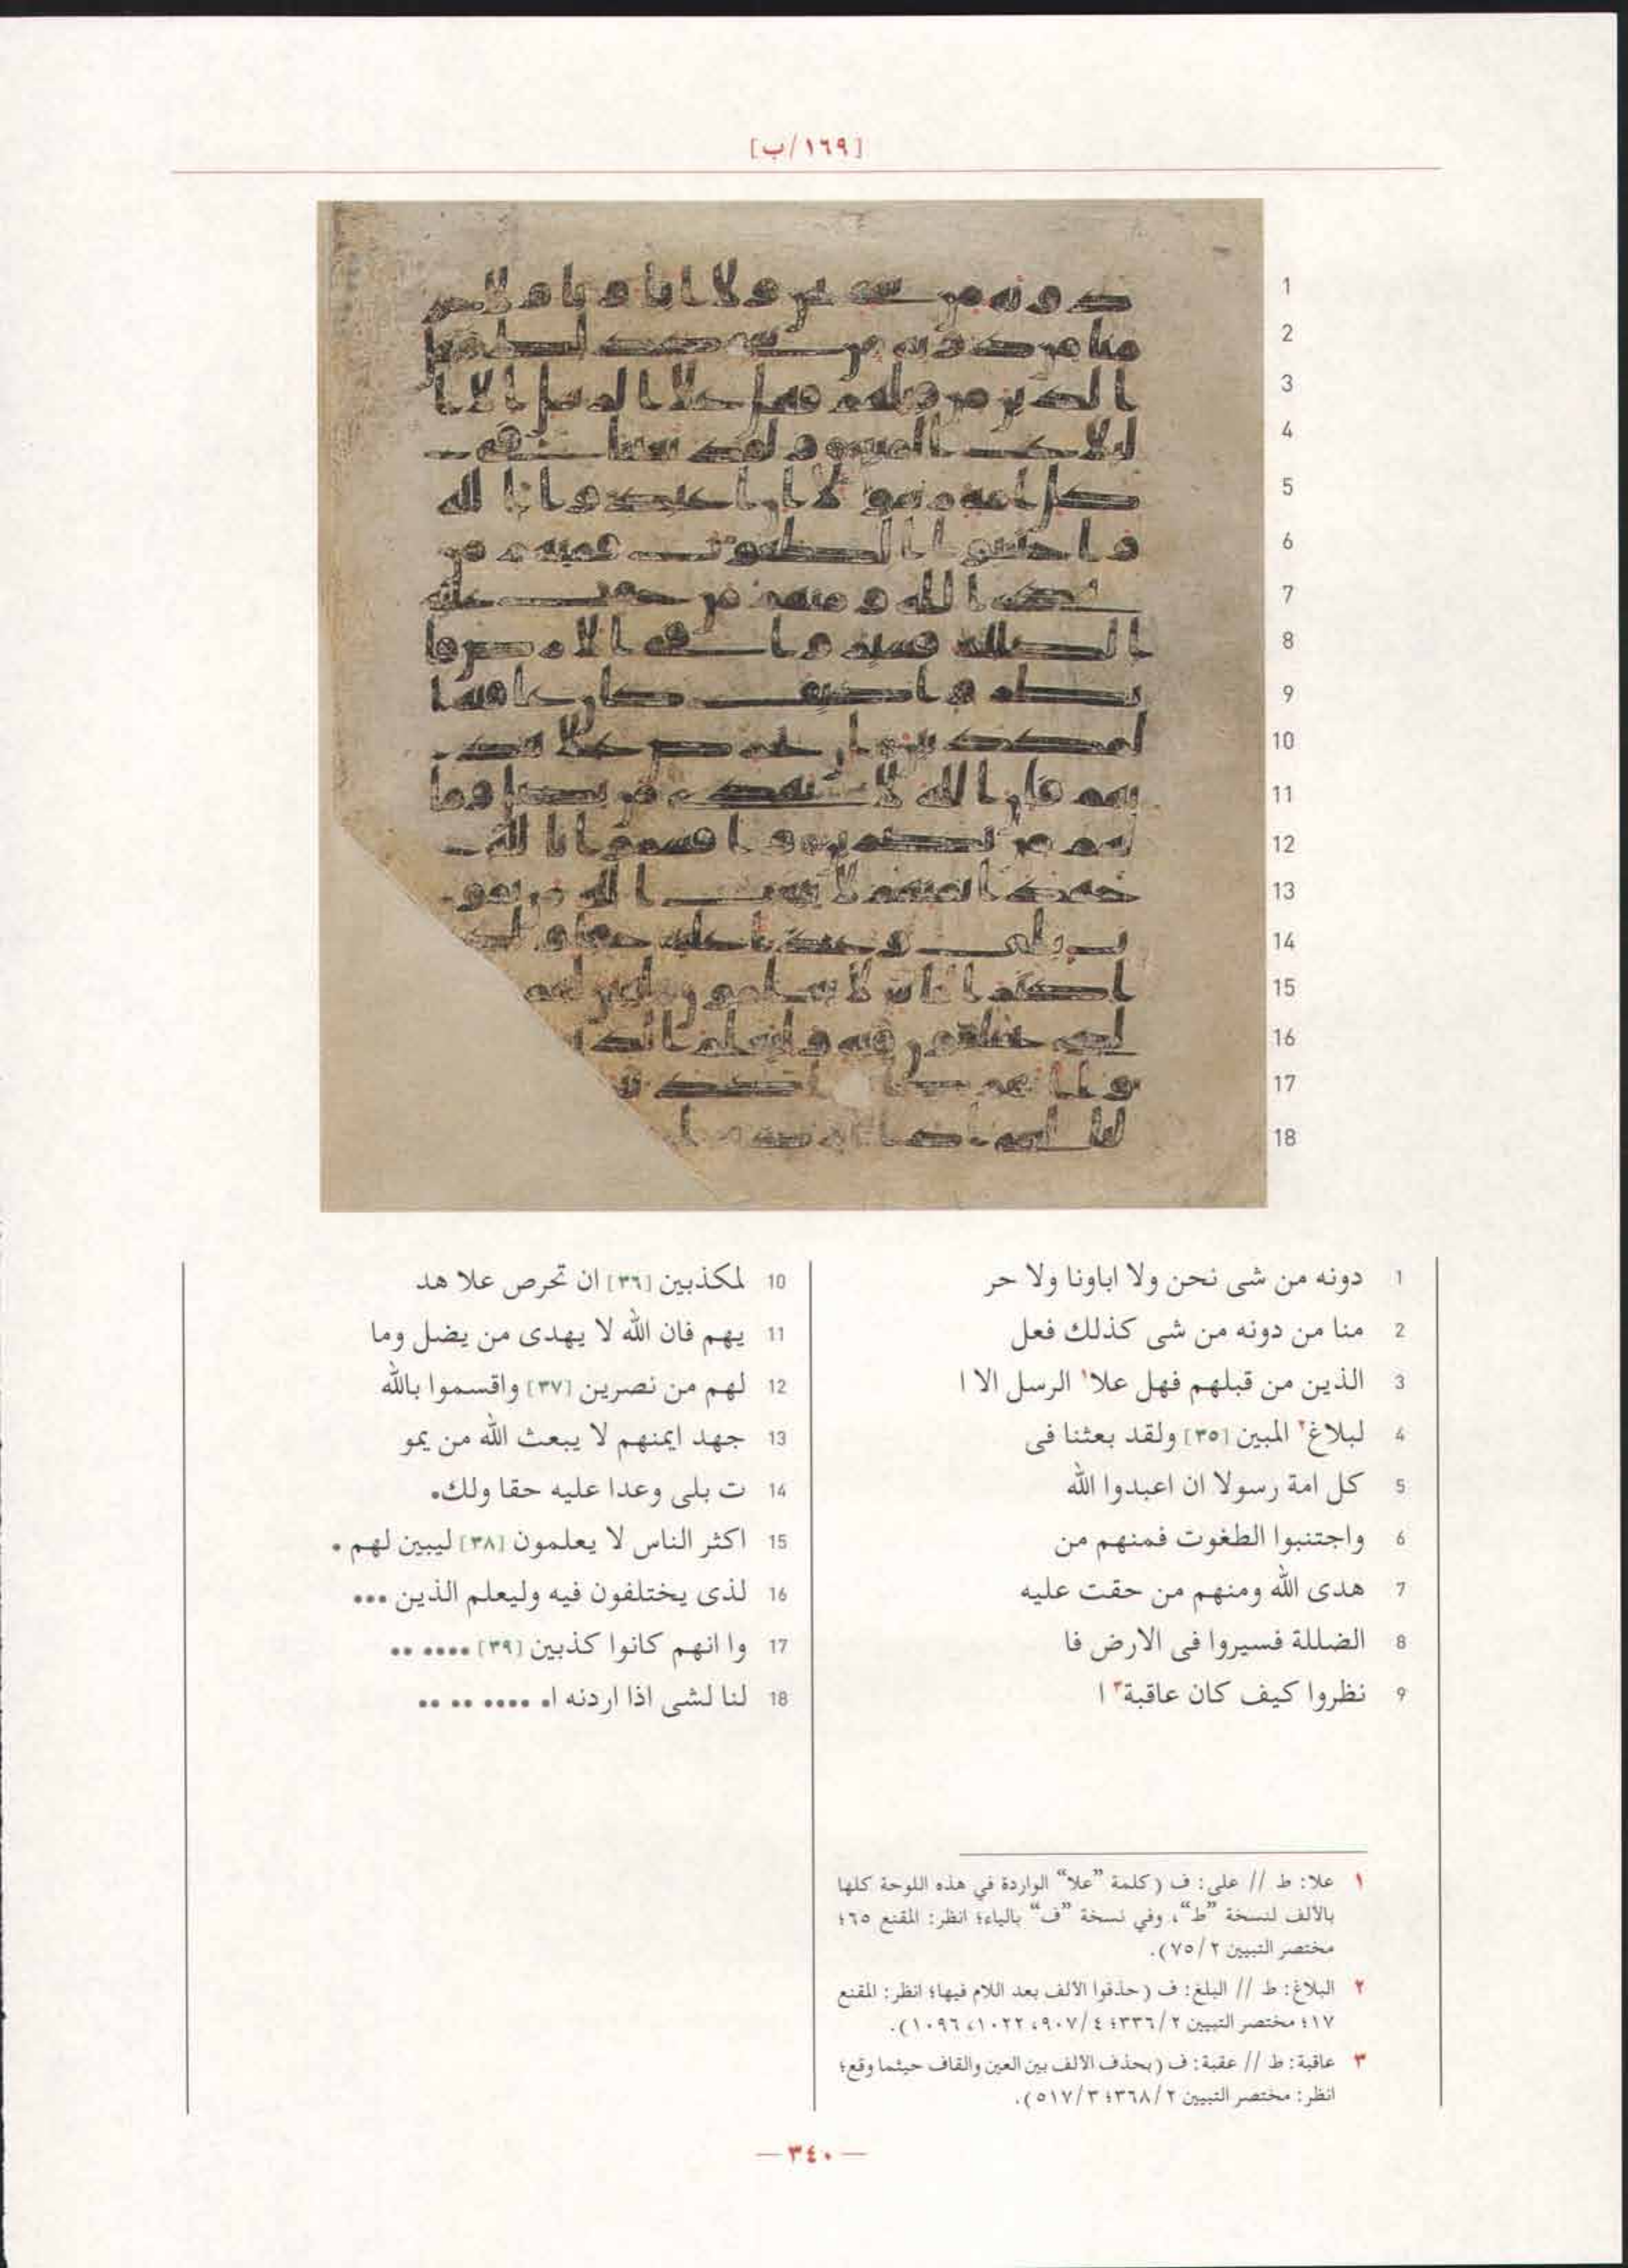 [١٦٩/ب]
1 دونه من شى نحن ولا اباونا ولا حر
2 منا من دونه من شى كذلك فعل
3 الذين من قبلهم فهل علا١ الرسل الا ا
4 لبلاغ٢ المبين [٣٥] ولقد بعثنا فى
5 كل امة رسولا ان اعبدوا الله
6 واجتنبوا الطغوت فمنهم من
7 هدى الله ومنهم من حقت عليه
8 الضللة فسيروا فى الارض فا
9 نظروا كيف كان عاقبة٣ ا
10 لمكذبين [٣٦] ان تحرص علا هد
11 يهم فان الله لا يهدى من يضل وما
12 لهم من نصرين [٣٧] واقسموا بالله
13 جهد ايمنهم لا يبعث الله من يمو
14 ت بلى وعدا عليه حقا ولك•
15 اكثر الناس لا يعلمون [٣٨] ليبين لهم •
16 لذى يختلفون فيه وليعلم الذين •••
17 وا انهم كانوا كذبين [٣٩] •••• ••
18 لنا لشى اذا اردنه ا• •••• •• ••
١ علا: ط // على: ف (كلمة "علا" الواردة في هذه اللوحة كلها
بالألف لنسخة "ط"، وفي نسخة "ف" بالياء؛ انظر: المقنع ٦٥؛
مختصر التبيين ٧٥/٢).
٢ البلاغ: ط // البلغ: ف (حذفوا الألف بعد اللام فيها؛ انظر: المقنع
١٧؛ مختصر التبيين ٣٣٦/٢؛ ٩٠٧/٤، ١٠٢٢، ١٠٩٦).
٣ عاقبة: ط // عقبة: ف (بحذف الألف بين العين والقاف حيثما وقع؛
انظر: مختصر التبيين ٣٦٨/٢؛ ٥١٧/٣).
— ٣٤٠ —